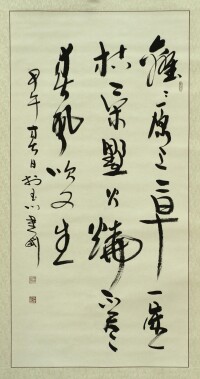 離〻原上草一歲
枯榮野火燒不盡
春風吹又生
甲午